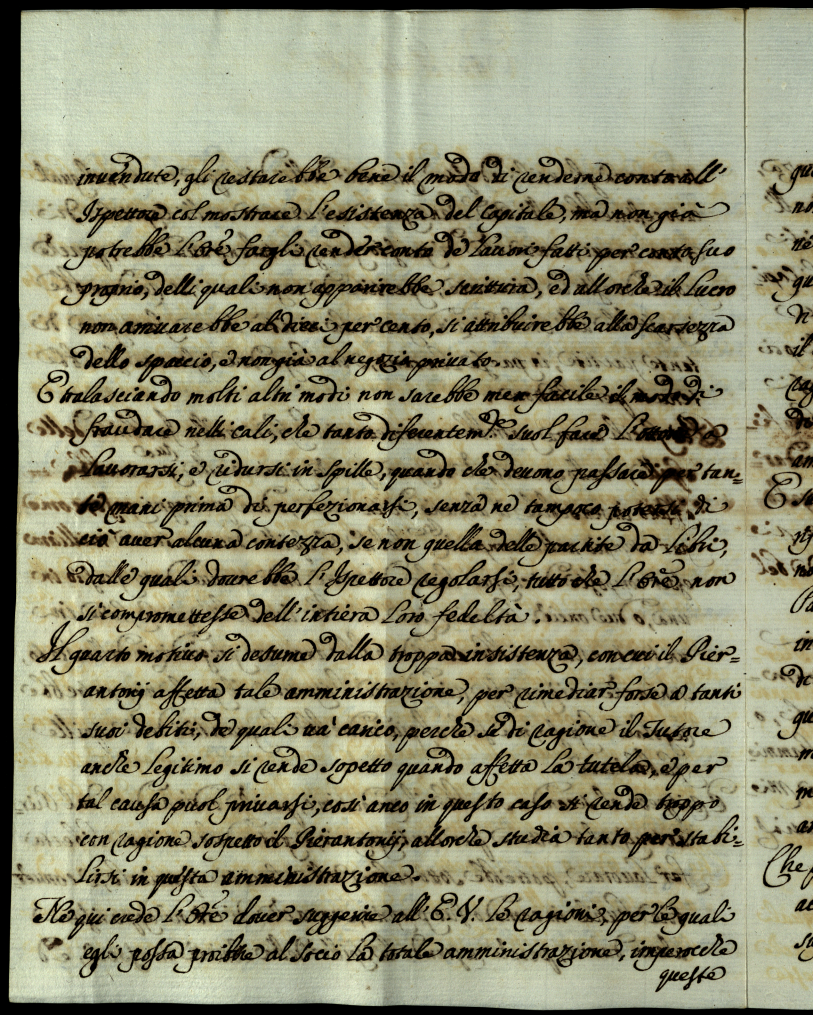 invendute, gli restarebbe bene il modo di renderne conto all'
Ispettore col mostrare l'esistenza del Capitale, ma non già
potrebbe l'Ore fargli render conto de Lavori fatti per conto suo
proprio, delli quali non apparirebbe scrittura, ed allorche il Lucro
non arrivarebbe al dieci per cento, si attribuirebbe alla scarsezza
dello spaccio, e non già al negozio privato.
E tralasciando molti altri modi non sarebbe men facile il modo di
fraudare nelli cali, che tanto differentemte suol fare l'ottone
Lavorarsi, e ridursi in spille, quando che devono passare per tan=
te mani prima di perfezionarsi, senza ne tampoco potersi di
ciò aver alcuna contezza, se non quella delle partite da Libri,
dalle quali dovrebbe l'Ispettore regolarsi, tutto che l'Ore non
si compromettesse dell'intiera loro fedeltà.
Il quarto motivo si desume dalla troppa insistenza, con cui il Pier=
antonij affetta tale amministrazione, per rimediar forse a tanti
suoi debiti, de quali và carico, perche se di ragione il Tutore
anche legitimo si rende sopetto quando affetta la tutela, e per
tal causa puol privarsi, così anco in questo caso si rende troppo
con ragione sospetto il Pierantonij, allorche studia tanto per stabi=
lirsi in questa amministrazione.
Ne qui crede l'Ore dover suggerire all'E. V. le ragioni, per le quali
egli possa proibire al socio la totale amministrazione, imperocche
queste